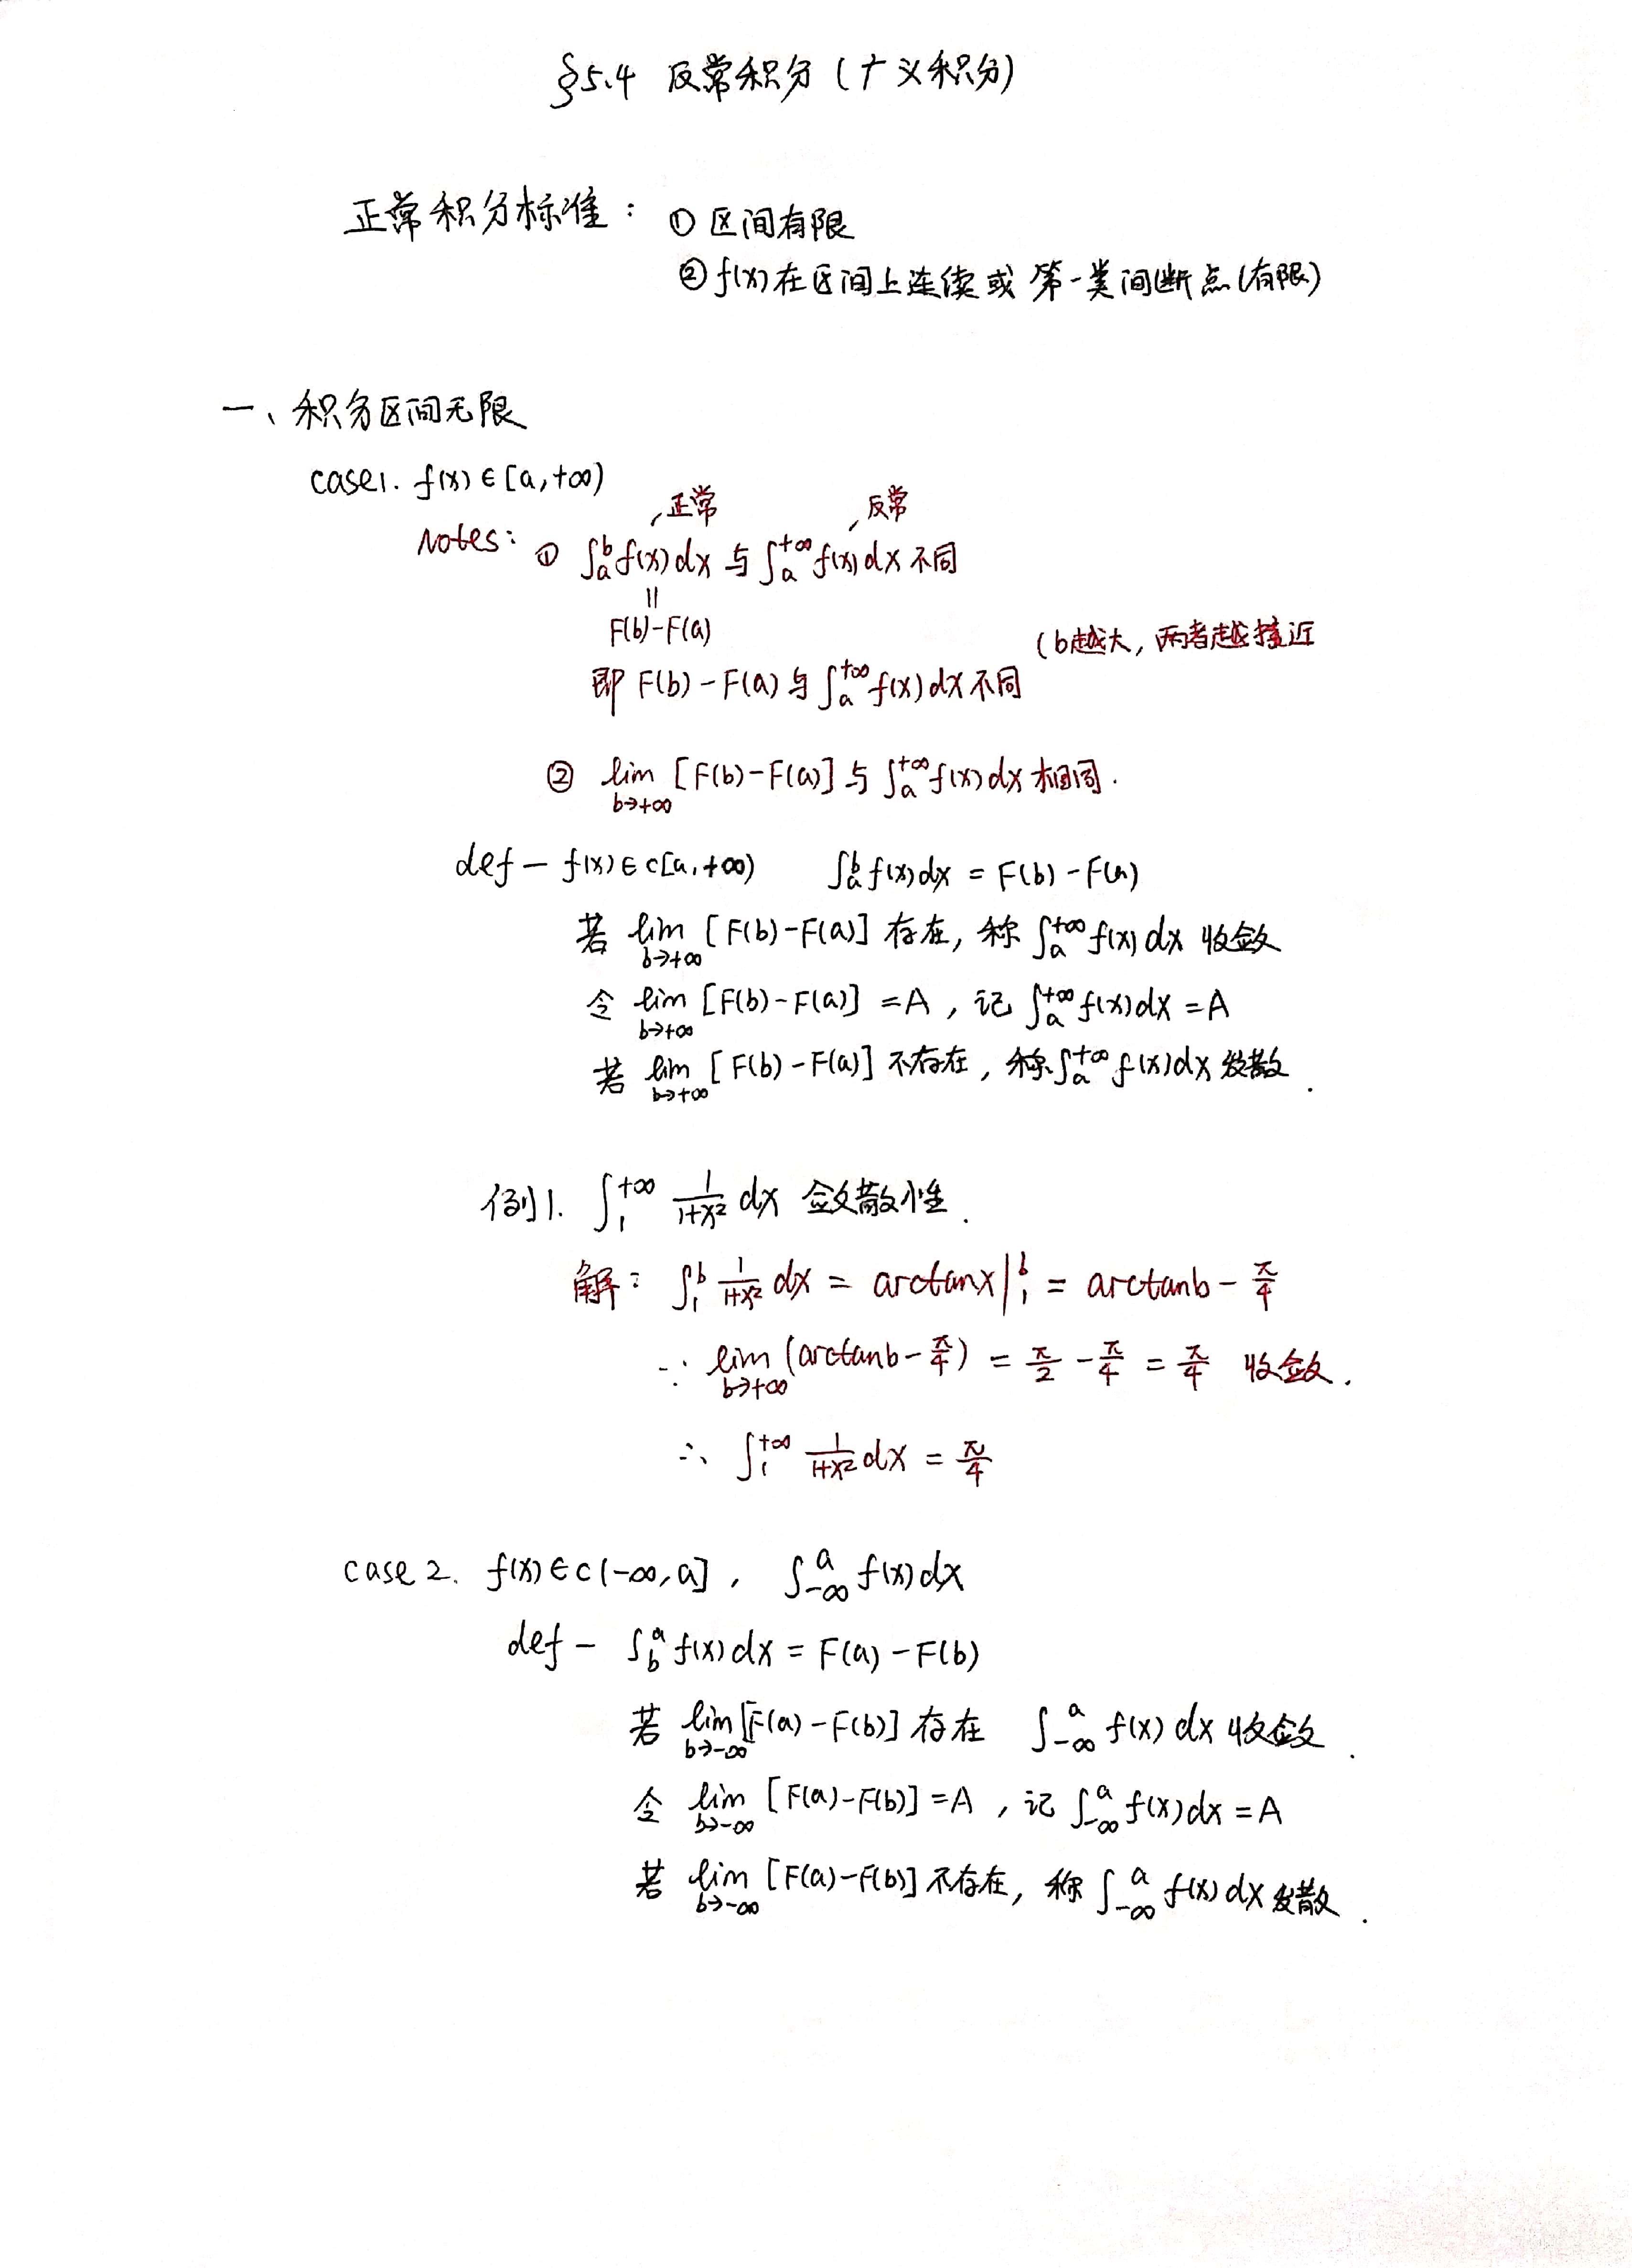 §5.4 反常积分（广义积分）
正常积分标准：① 区间有限
② f(x)在区间上连续或第一类间断点(有限)
一、积分区间无限
case1. f(x)∈[a,+∞)
正常 反常
Notes: ① ∫_a^b f(x)dx 与 ∫_a^{+∞} f(x)dx 不同
||
F(b)-F(a)
(b越大，两者越接近
即 F(b)-F(a) 与 ∫_a^{+∞} f(x)dx 不同
② lim_{b→+∞} [F(b)-F(a)] 与 ∫_a^{+∞} f(x)dx 相同.
def — f(x)∈c[a,+∞) ∫_a^b f(x)dx = F(b)-F(a)
若 lim_{b→+∞} [F(b)-F(a)] 存在, 称 ∫_a^{+∞} f(x)dx 收敛
令 lim_{b→+∞} [F(b)-F(a)] = A , 记 ∫_a^{+∞} f(x)dx = A
若 lim_{b→+∞} [F(b)-F(a)] 不存在, 称 ∫_a^{+∞} f(x)dx 发散.
例1. ∫_1^{+∞} 1/(1+x²) dx 敛散性.
解: ∫_1^b 1/(1+x²) dx = arctanx|_1^b = arctanb - π/4
∵ lim_{b→+∞} (arctanb - π/4) = π/2 - π/4 = π/4 收敛.
∴ ∫_1^{+∞} 1/(1+x²) dx = π/4
case 2. f(x)∈c(-∞,a] , ∫_{-∞}^a f(x)dx
def — ∫_b^a f(x)dx = F(a)-F(b)
若 lim_{b→-∞} [F(a)-F(b)] 存在 ∫_{-∞}^a f(x)dx 收敛.
令 lim_{b→-∞} [F(a)-F(b)] = A , 记 ∫_{-∞}^a f(x)dx = A
若 lim_{b→-∞} [F(a)-F(b)] 不存在, 称 ∫_{-∞}^a f(x)dx 发散.